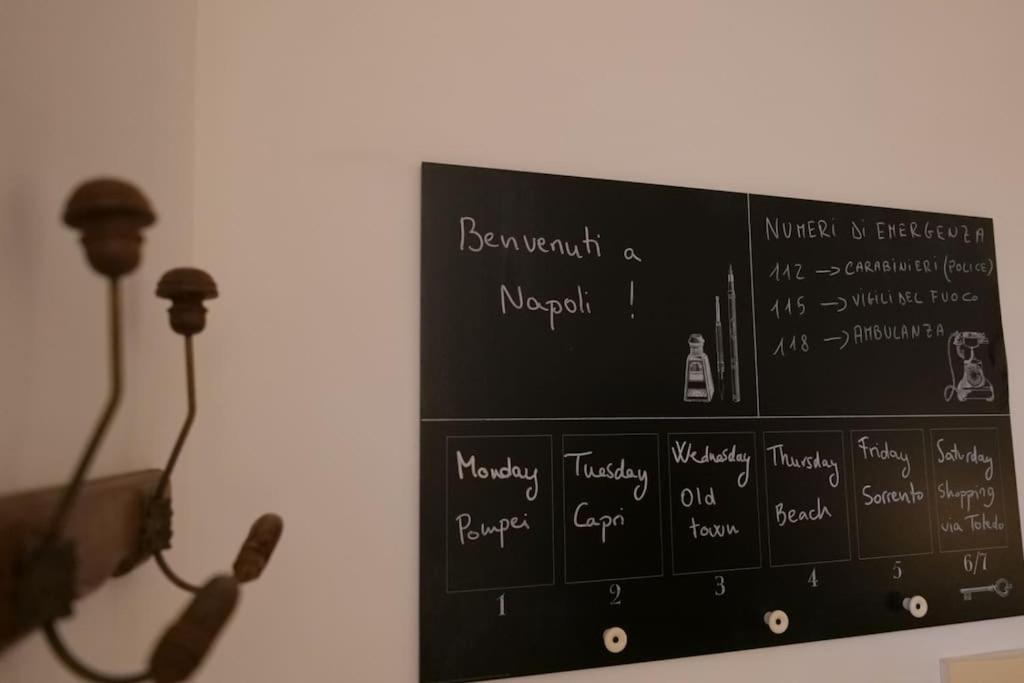 Benvenuti a
Napoli !
NUMERI DI EMERGENZA
112 → CARABINIERI (POLICE)
115 → VIGILI DEL FUOCO
118 → AMBULANZA
Monday
Pompei
1
Tuesday
Capri
2
Wednesday
Old
town
3
Thursday
Beach
4
Friday
Sorrento
5
Saturday
shopping
via Toledo
6/7